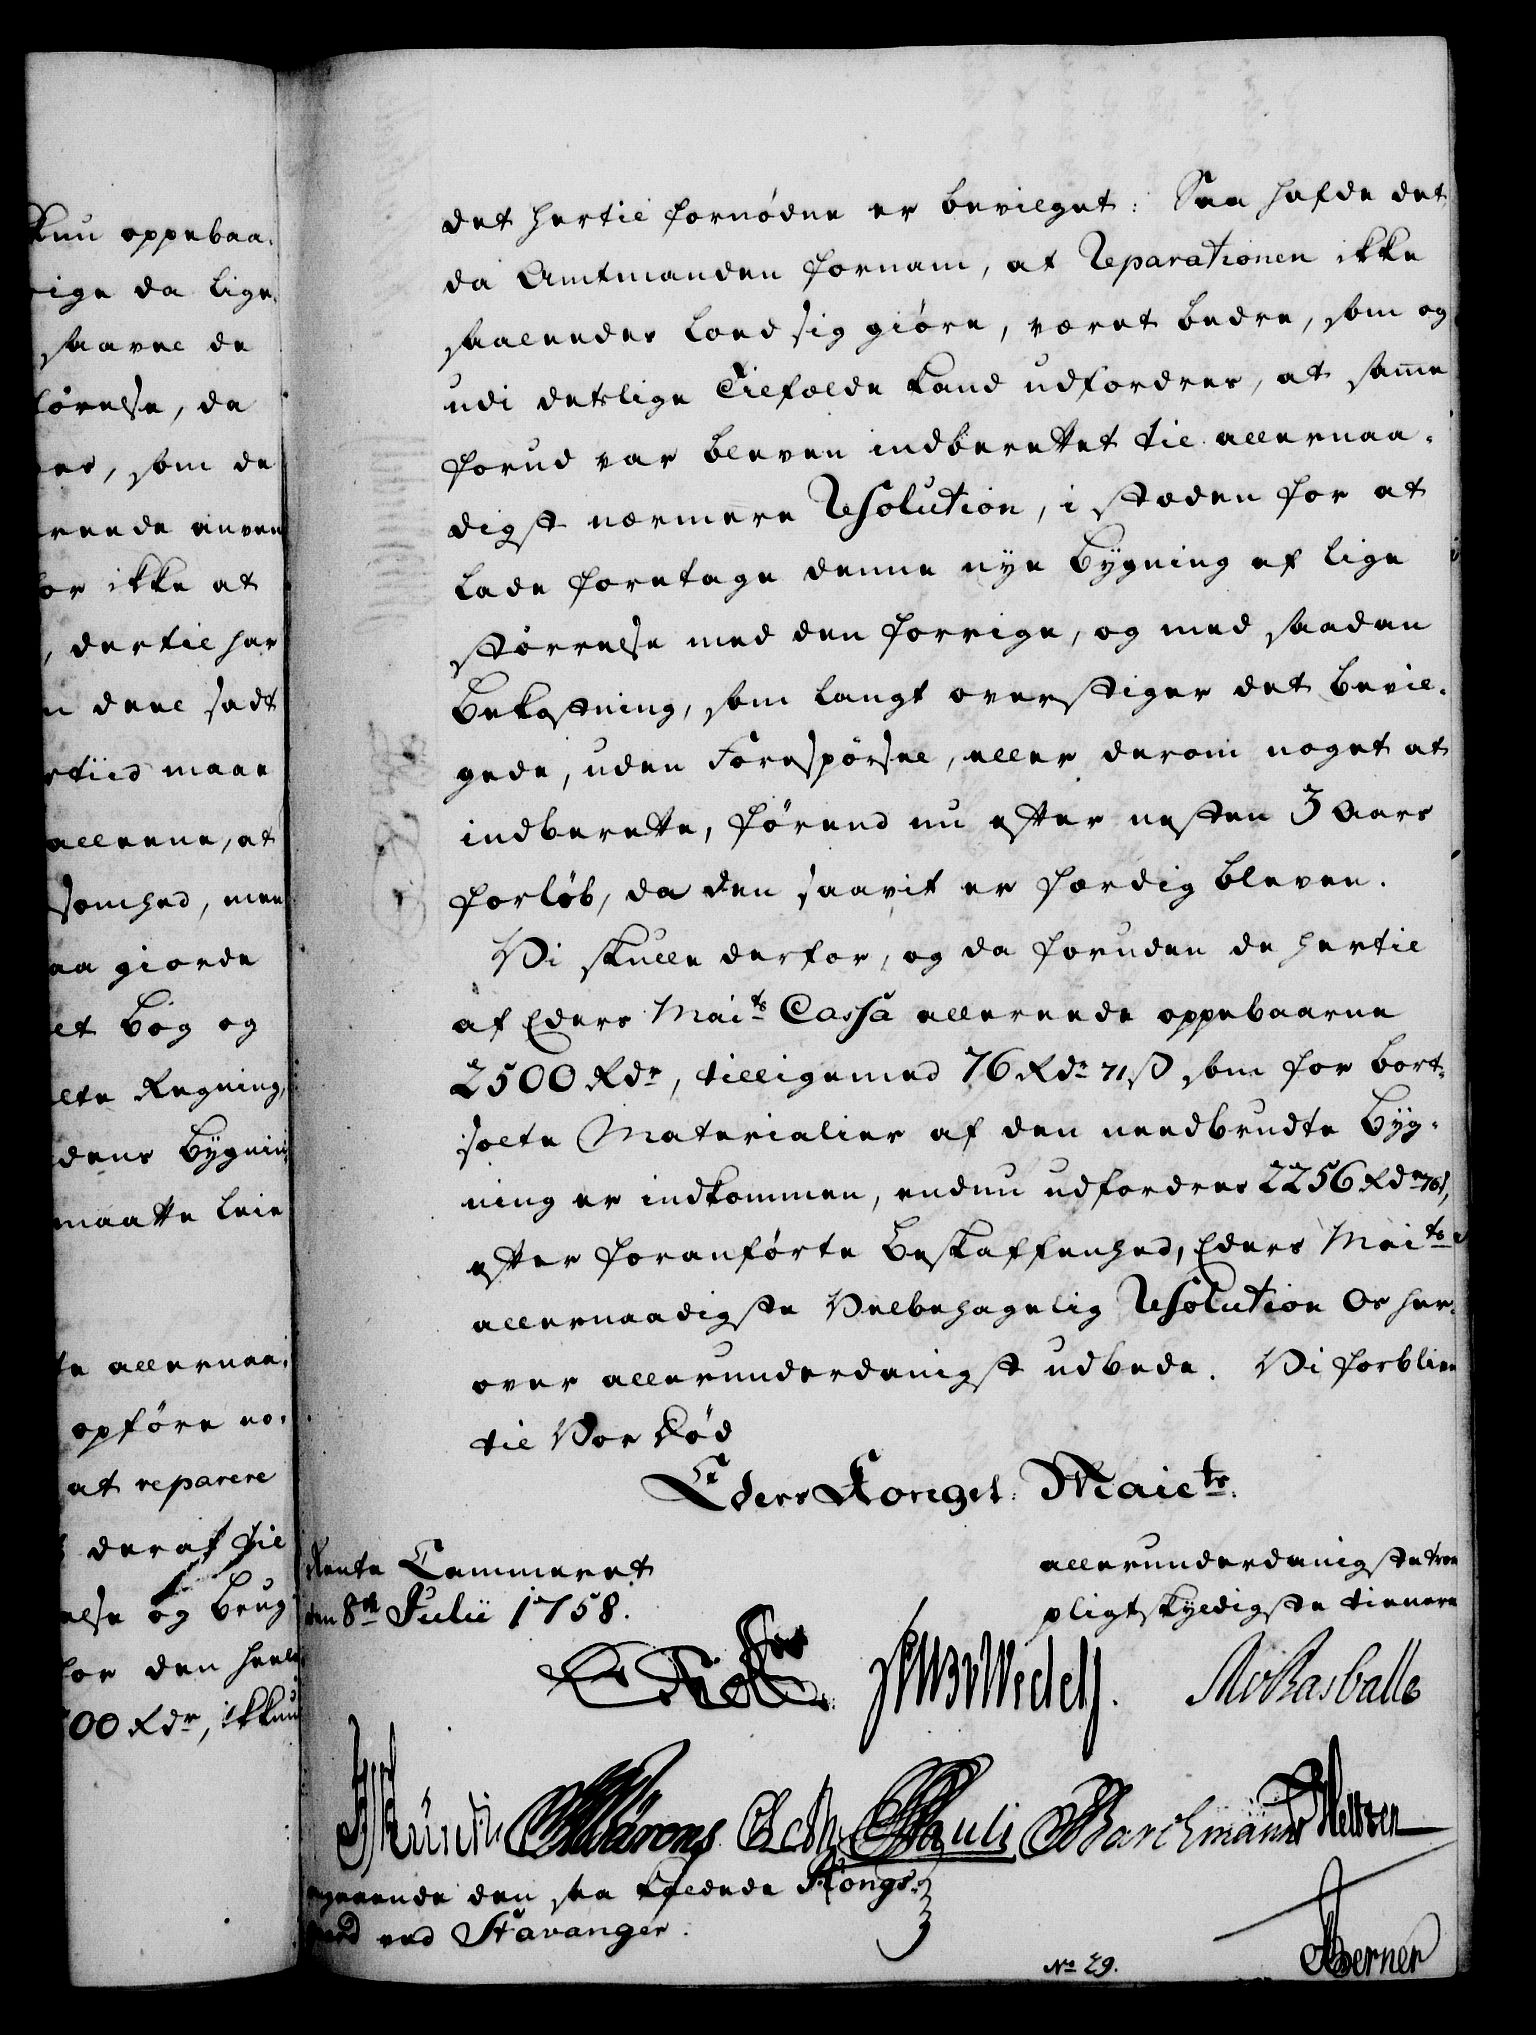 kun oppebaa-
rige da lige-
saavel de
lørelse, da
er, som de
rende anven
for ikke at
, dertil har
n deel sadt
rtiid maae
alleene, at
somhed, men
aa giorde
et Bog og
lte Regning,
dens Bygnin
maatte leie
te allernaa-
opføre no-
at reparere
deraf til
else og Brug
for den heele
00 Rdr, ikkun
det hertil fornødne er bevilget: Saa hafde det
da Amtmanden fornam, at Reparationen ikke
saaleedes loed sig giøre, været bedre, som og
udi deslige Tilfælde kand udfordres, at samme
forud var bleven indberettet til allernaa-
digst nærmere Resolution, i stæden for at
lade foretage denne nye Bÿgning af lige
størrelse med den forrige, og med saadan
Bekostning, som langt overstiger det bevil-
gede, uden Forespørsel, eller derom noget at
indberette, førend nu efter nesten 3 Aars
forløb, da den saavit er færdig bleven.
Vi skulle derfor, og da foruden de hertil
af Eders Mai:ts Cassa allereede oppebaarne
2500 Rdr, tilligemed 76 Rdr 71 ß som for bort-
solte Materialier af den needbrudte Bÿg-
ning er indkommen, endnu udfordres 2256 Rdr 76 ß,
efter foranførte Beskaffenhed, Eders Mai:ts
allernaadigste Velbehagelig Resolution Os her-
over allerunderdanigst udbede. Vi forblive
til Vor Død
Eders Kongel: Maiets.
Rente Cammeret
den 8de Julii 1758.
allerunderdanigste troe
pligtskÿldigste tienere
Wedell. Rasballe
Pauli Barchmann
angaaende den saa kaldede Kongs-
gaard ved Stavanger.
No 29.
Berner